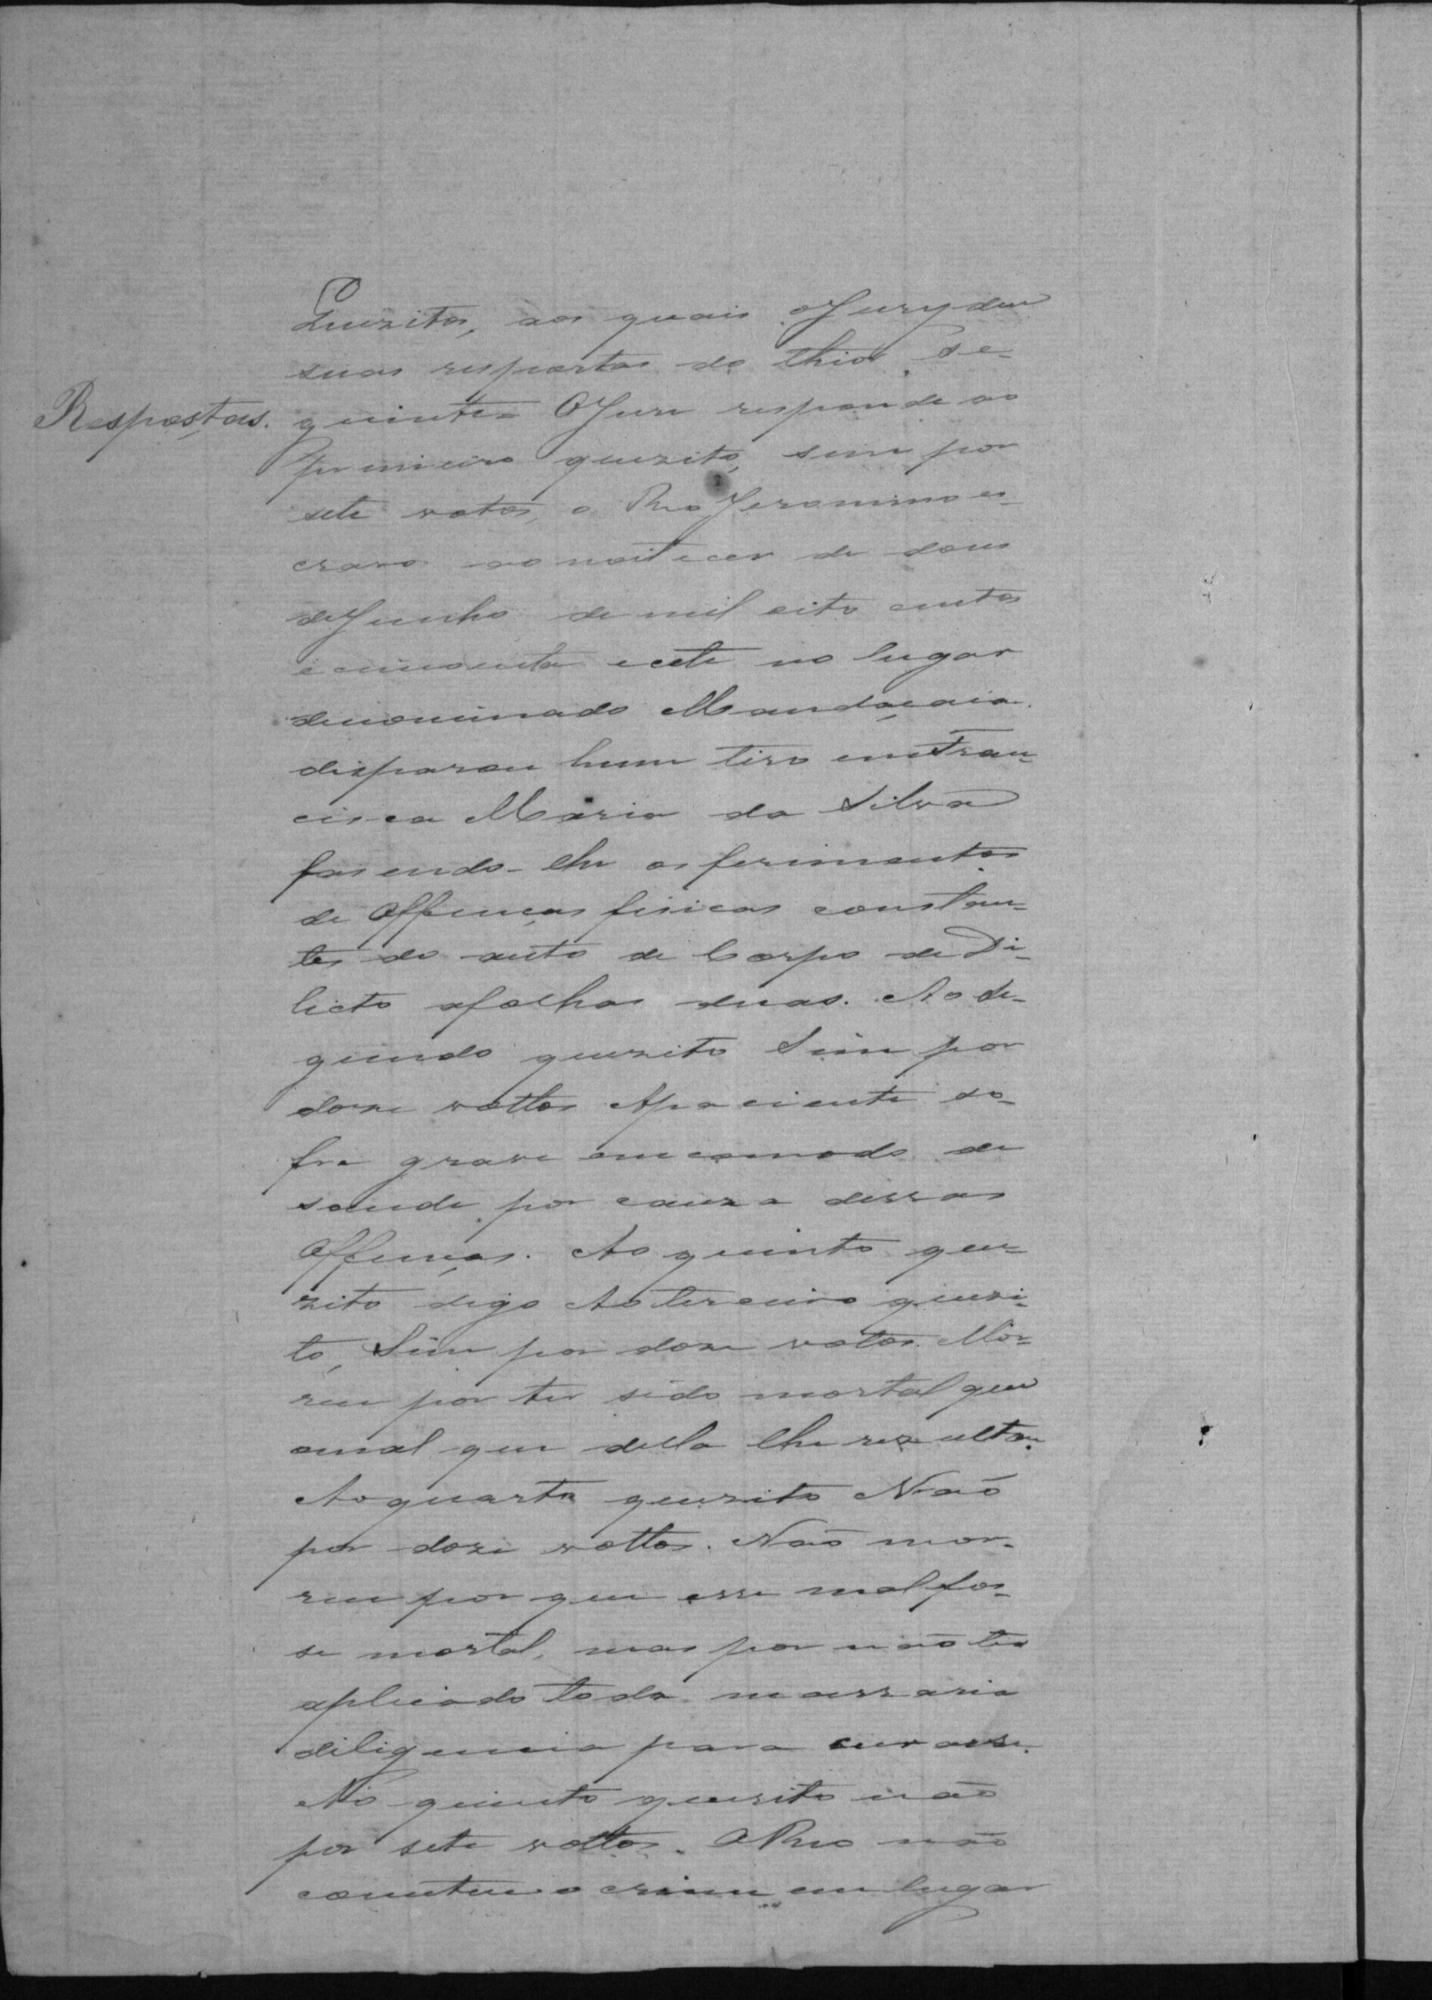 Quizitos, aos quais o Jury deu
suas respostas do thior se-
Respostas.
guinte = O Jure responde ao
primeiro quezito, sim por
sete votos, o Reo Jeronimo es-
cravo ao noitecer de dous
de Junho de mil oito centos
e cincoenta e cete no lugar
denominado Mandaçaia.
disparou hum tiro em Fran-
cisca Maria da Silva
fasendo-lhe os ferimentos
de Offenças fisicas constan-
tes do auto de Corpo de Di-
licto afolhas duas. Ao se-
gundo quezito Sim por
doze vottos Apaciente so-
fre grave emcomodo de
saude por cauza dessas
Offenças. Ao quinto que-
zito digo Ao terceiro quezi-
to, Sim por doze votos. Mor-
reu por ter sido mortal que
omal que della lhe rezultou.
Ao quarto quezito Naõ
por doze vottos. Naõ mor-
reu por que esse mal fos-
se mortal, mas por não ter
aplicado toda nessaria
diligencia para curar se.
Ao quinto quezito não
por sete vottos. O Reo não
cometeu o crime em lugar